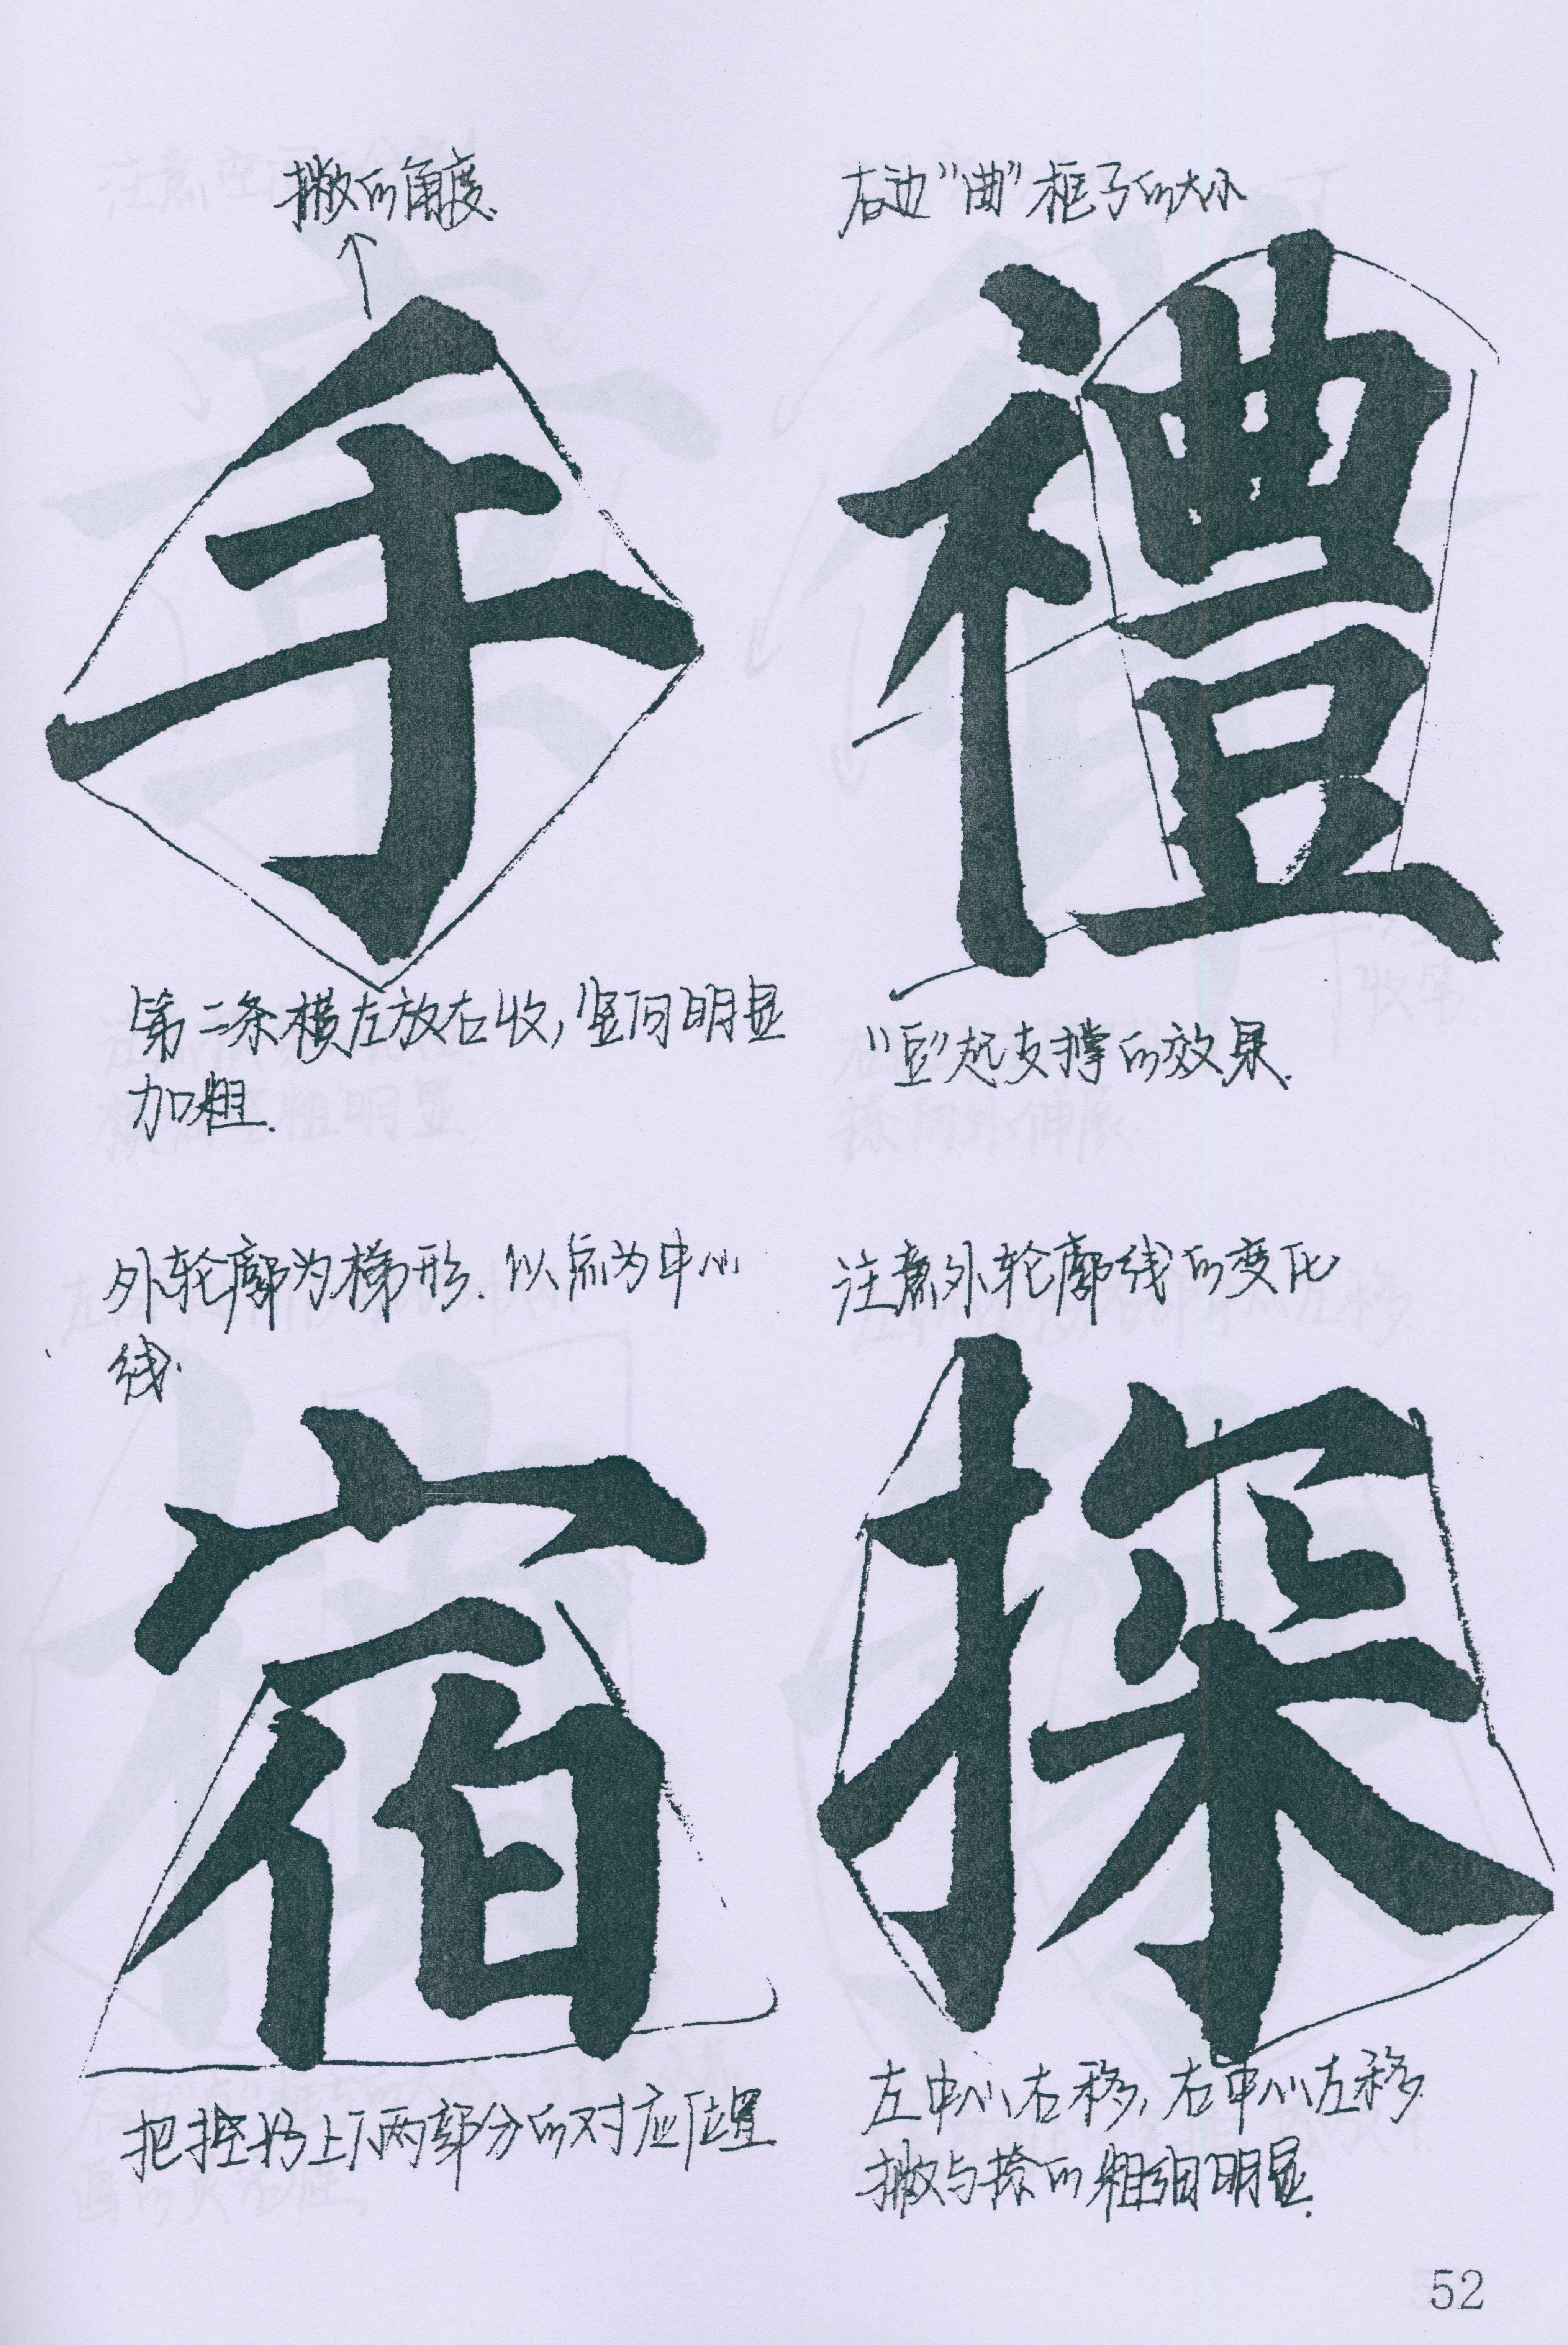 撇的角度.
右边“曲”框子的大小
手
禮
第二条横左放右收,竖向明显
加粗.
“豆”起支撑的效果.
外轮廓为梯形.以点为中心
线.
注意外轮廓线的变化
宿
探
把握好上下两部分的对应位置
左中心右移,右中心左移.
撇与捺的粗细明显.
52